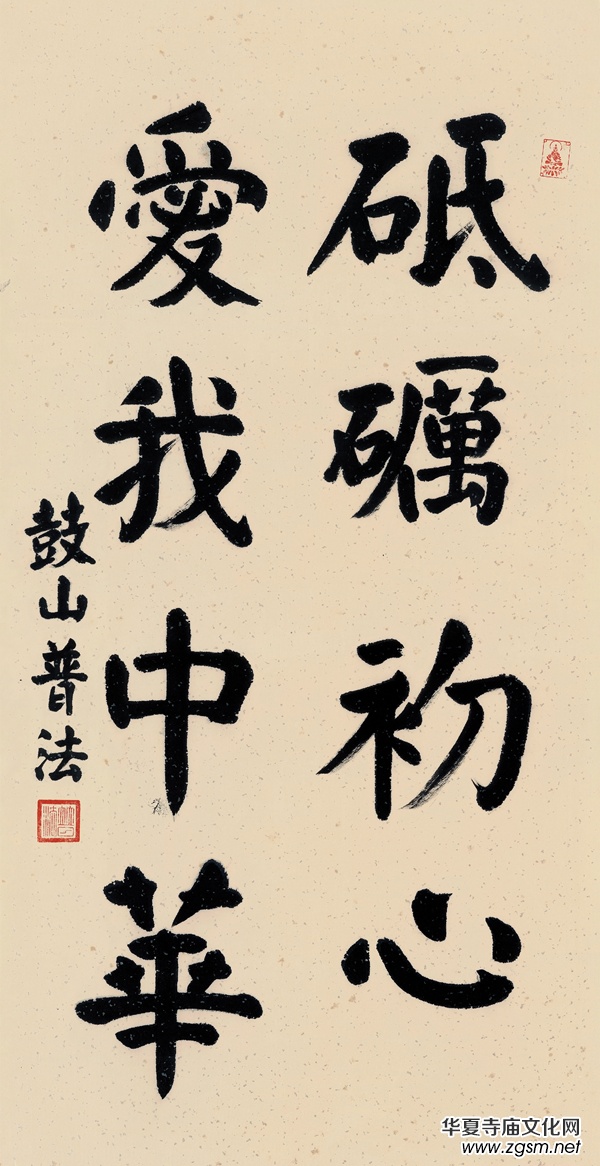 砥礪初心
愛我中華
鼓山普法
华夏寺庙文化网
www.zgsm.net